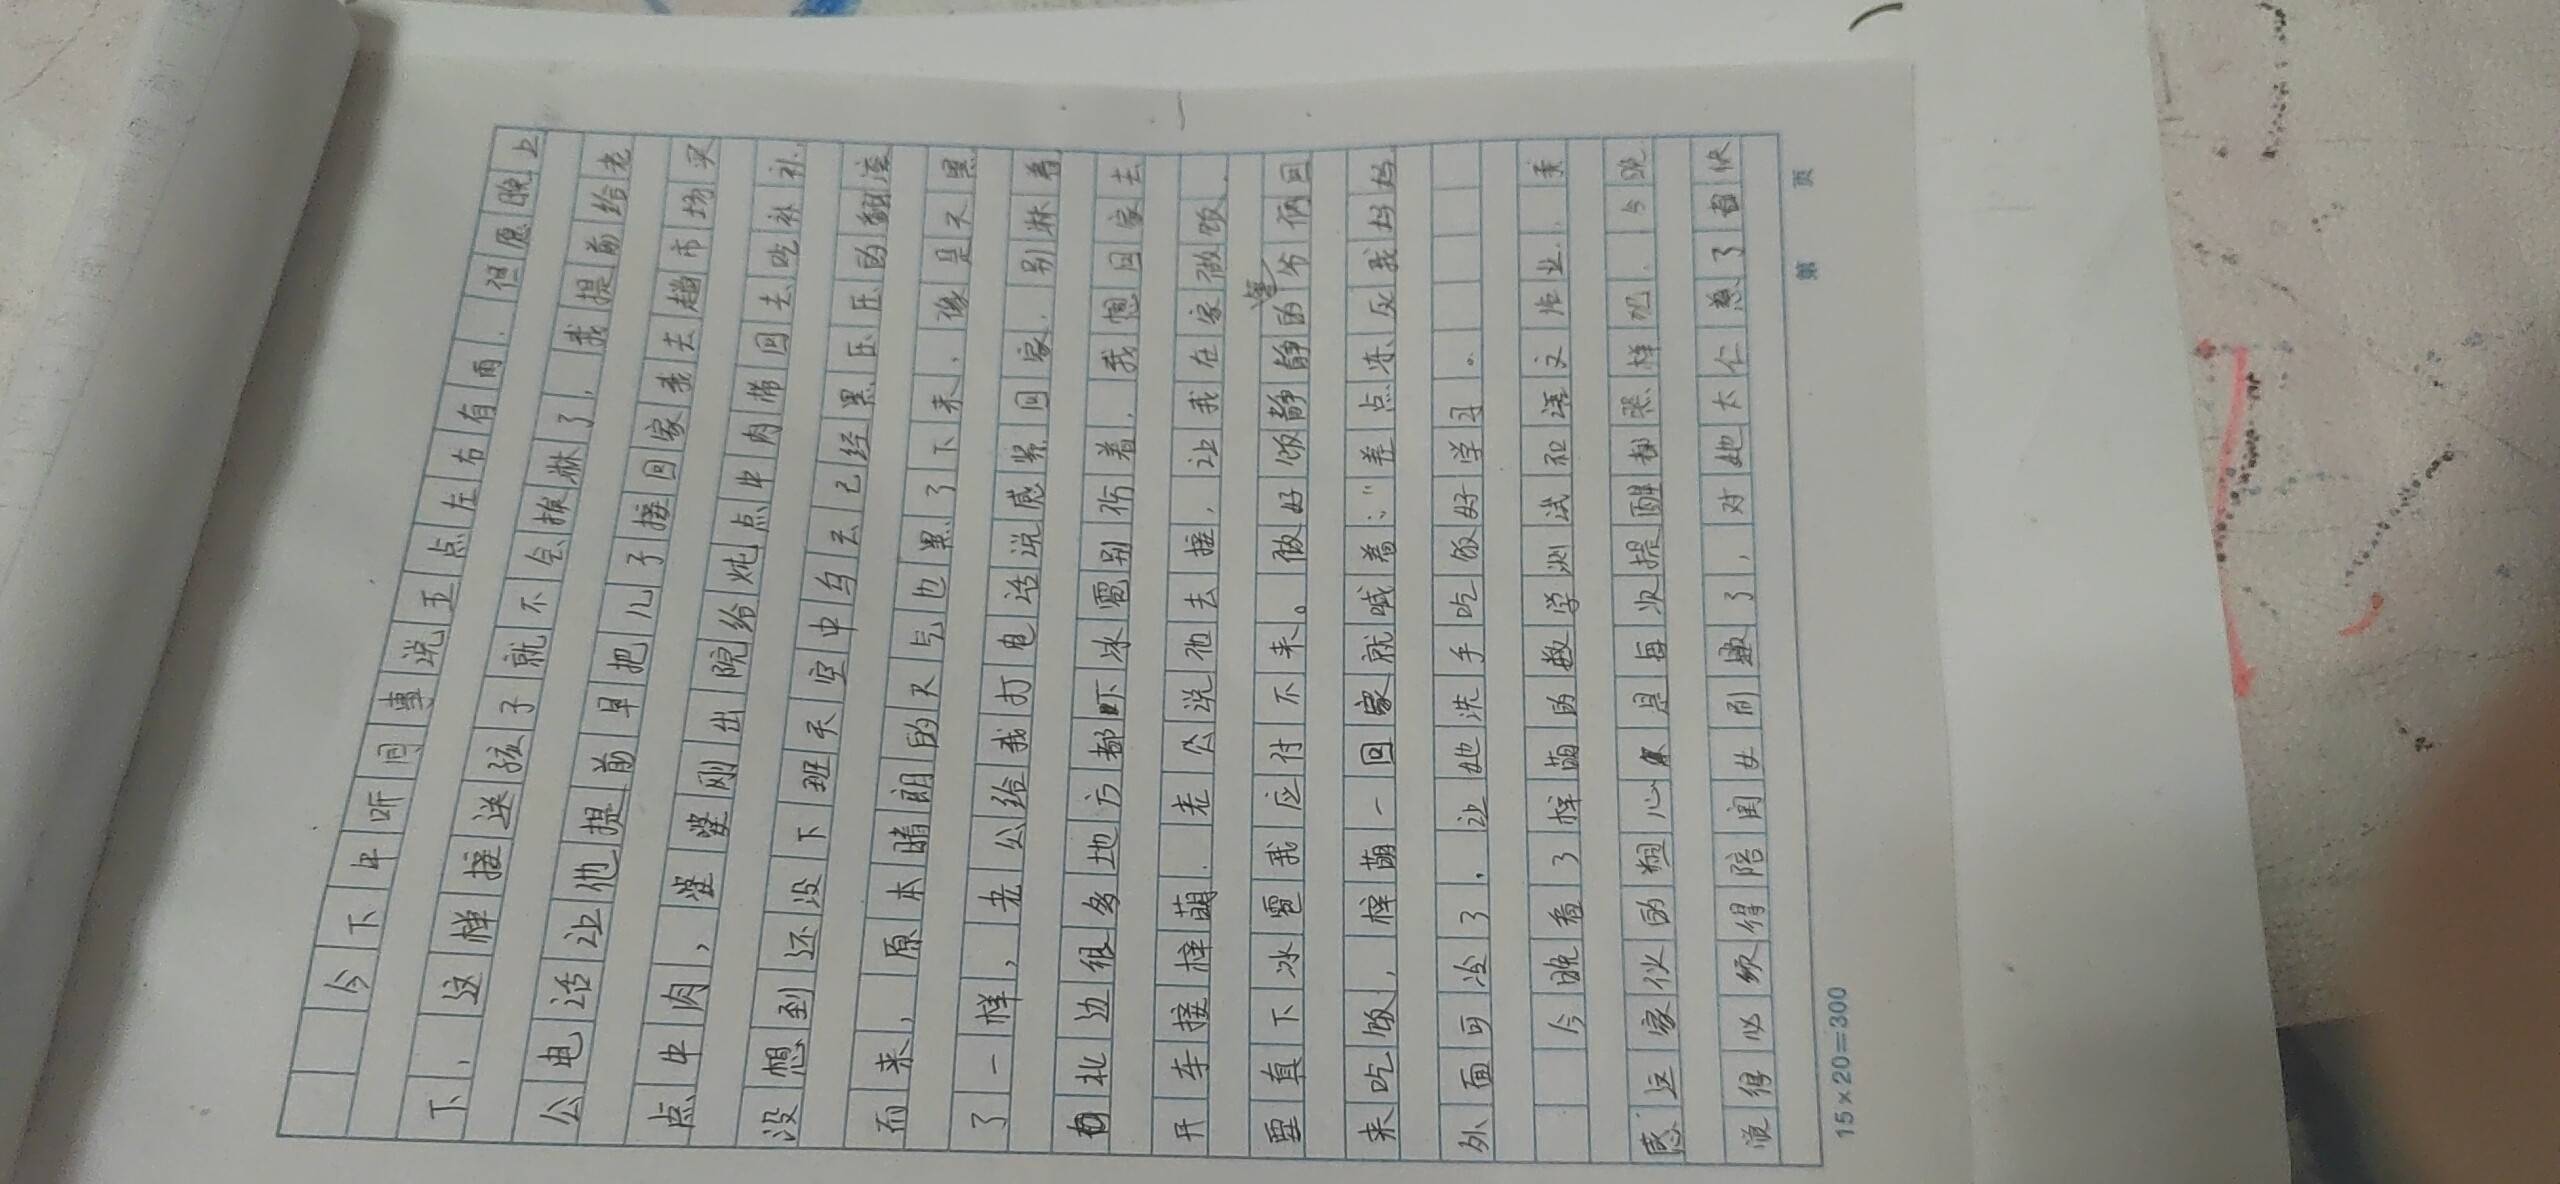 今下午听同事说五点左右有雨，但愿晚上
下，这样接送孩子就不会挨淋了，我提前给老
公电话让他提前早把儿子接回家我去趟市场买
点牛肉，婆婆刚出院给炖点牛肉带回去吃补补.
没想到还没下班天空中乌云已经黑压压的翻滚
而来，原本晴朗的天气也黑了下来，像是天黑
了一样，老公给我打电话说感紧回家，别淋着
札边很多地方都下冰雹别伤着，我想回家去
开车接梓萌.老公说他去接，让我在家做饭.
要真下冰雹我应付不来。做好饭静静的等爷俩回
来吃饭，梓萌一回家就喊着："差点来，灰我妈妈
外面可冷了，让她洗手吃饭好学习。
今晚看了梓萌的数学测试和语文作业.
感这家伙的粗心是每次提醒都照样犯.今晚
觉得必须得陪闺女刷题了，对她太仁慈了
15×20=300
第 页